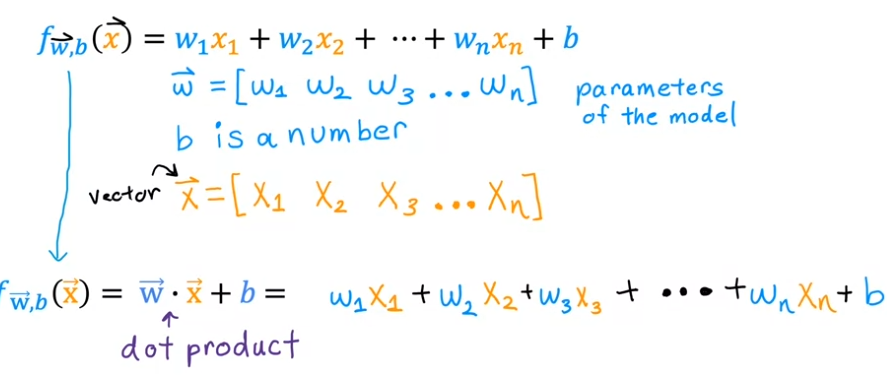 f_{\vec{w},b}(\vec{x}) = w_1x_1 + w_2x_2 + ⋯ + w_nx_n + b
\vec{w} = [w_1 w_2 w_3 ... w_n] parameters of the model
b is a number
vector \vec{x} = [x_1 x_2 x_3 ... x_n]
f_{\vec{w},b}(\vec{x}) = \vec{w} · \vec{x} + b = w_1x_1 + w_2x_2 + w_3x_3 + ... + w_nx_n + b
dot product